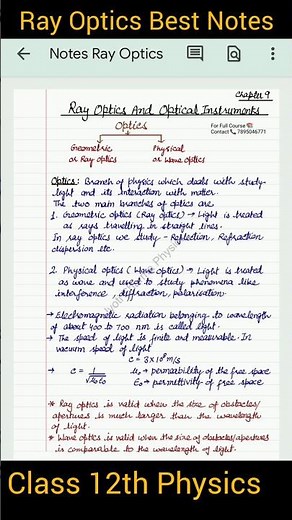 Ray Optics Best Notes
Notes Ray Optics
Chapter 9
Ray Optics And Optical Instruments
Optics
For Full Course
Contact 7895046771
Geometric Physical
or Ray optics or Wave optics
Optics: Branch of physics which deals with study
light and its interaction with matter.
The two main branches of optics are
1. Geometric optics (Ray optics) → Light is treated
as rays travelling in straight lines.
In ray optics we study - Reflection, Refraction
dispersion etc.
2. Physical optics (Wave optics) → Light is treated
as wave and used to study phenomena like
interference, diffraction, polarisation.
→ Electromagnetic radiation belonging to wavelength
of about 400 to 700 nm is called light.
→ The speed of light is finite and measurable. In
vacuum speed of light
c = 3×10⁸ m/s
→ c = 1/√μ₀ε₀ μ₀ → permeability of the free space
ε₀ → permittivity of free space
* Ray optics is valid when the size of obstacles/
apertures is much larger than the wavelength
of light.
* Wave optics is valid when the size of obstacles/apertures
is comparable to the wavelength of light.
Class 12th Physics